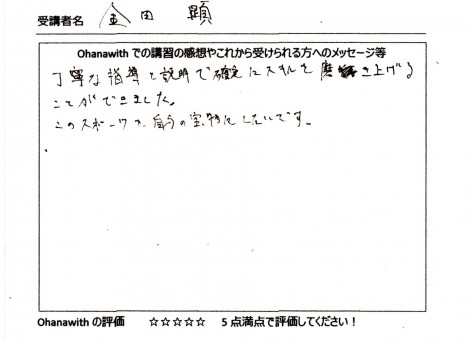 受講者名 金田 顕
Ohanawith での講習の感想やこれから受けられる方へのメッセージ等
丁寧な指導と説明で確実にスキルを磨き上げる
ことができました。
このスポーツを、自分の宝物にしたいです。
Ohanawith の評価 ☆☆☆☆☆ 5点満点で評価してください！